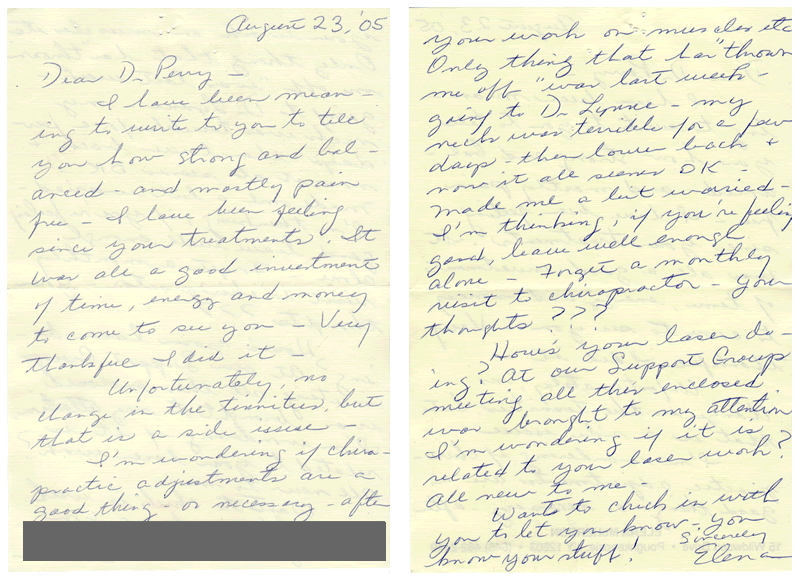 August 23, '05
Dear Dr Perry –
I have been mean-
ing to write to you to tell
you how strong and bal-
anced – and mostly pain
free – I have been feeling
since your treatments. It
was all a good investment
of time, energy and money
to come to see you – Very
thankful I did it –
Unfortunately, no
change in the tinnitus, but
that is a side issue –
I'm wondering if chiro-
practic adjustments are a
good thing – or necessary – after
your work on muscles etc
Only thing that has "thrown
me off" was last week –
going to Dr Lynne – my
neck was terrible for a few
days – then lower back &
now it all seems OK –
made me a bit worried –
I'm thinking, if you're feeling
good, leave well enough
alone – Forget a monthly
visit to chiropractor – your
thoughts ???
How's your laser do-
ing? At our Support Group
meeting all this enclosed
was brought to my attention
I'm wondering if it is
related to your laser work?
All new to me –
Wants to check in with
you to let you know – you
know your stuff!
Sincerely
Elena